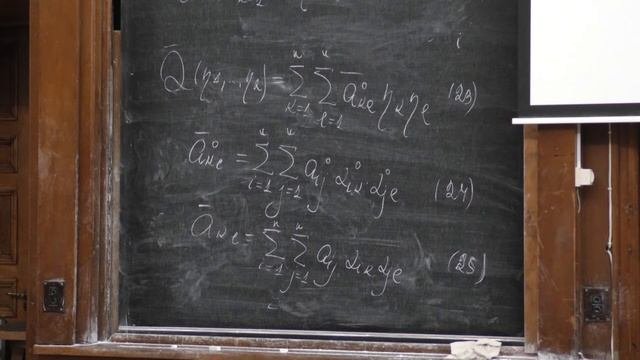 i
Q̄(η₁,...,ηₙ) = ∑ₖ₌₁ⁿ ∑ₗ₌₁ⁿ ā°ₖₗ ηₖ ηₗ (23)
ā°ₖₗ = ∑ᵢ₌₁ⁿ ∑ⱼ₌₁ⁿ a°ᵢⱼ α°ᵢₖ α°ⱼₗ (24)
āₖₗ = ∑ᵢ₌₁ⁿ ∑ⱼ₌₁ⁿ aᵢⱼ αᵢₖ αⱼₗ (25)